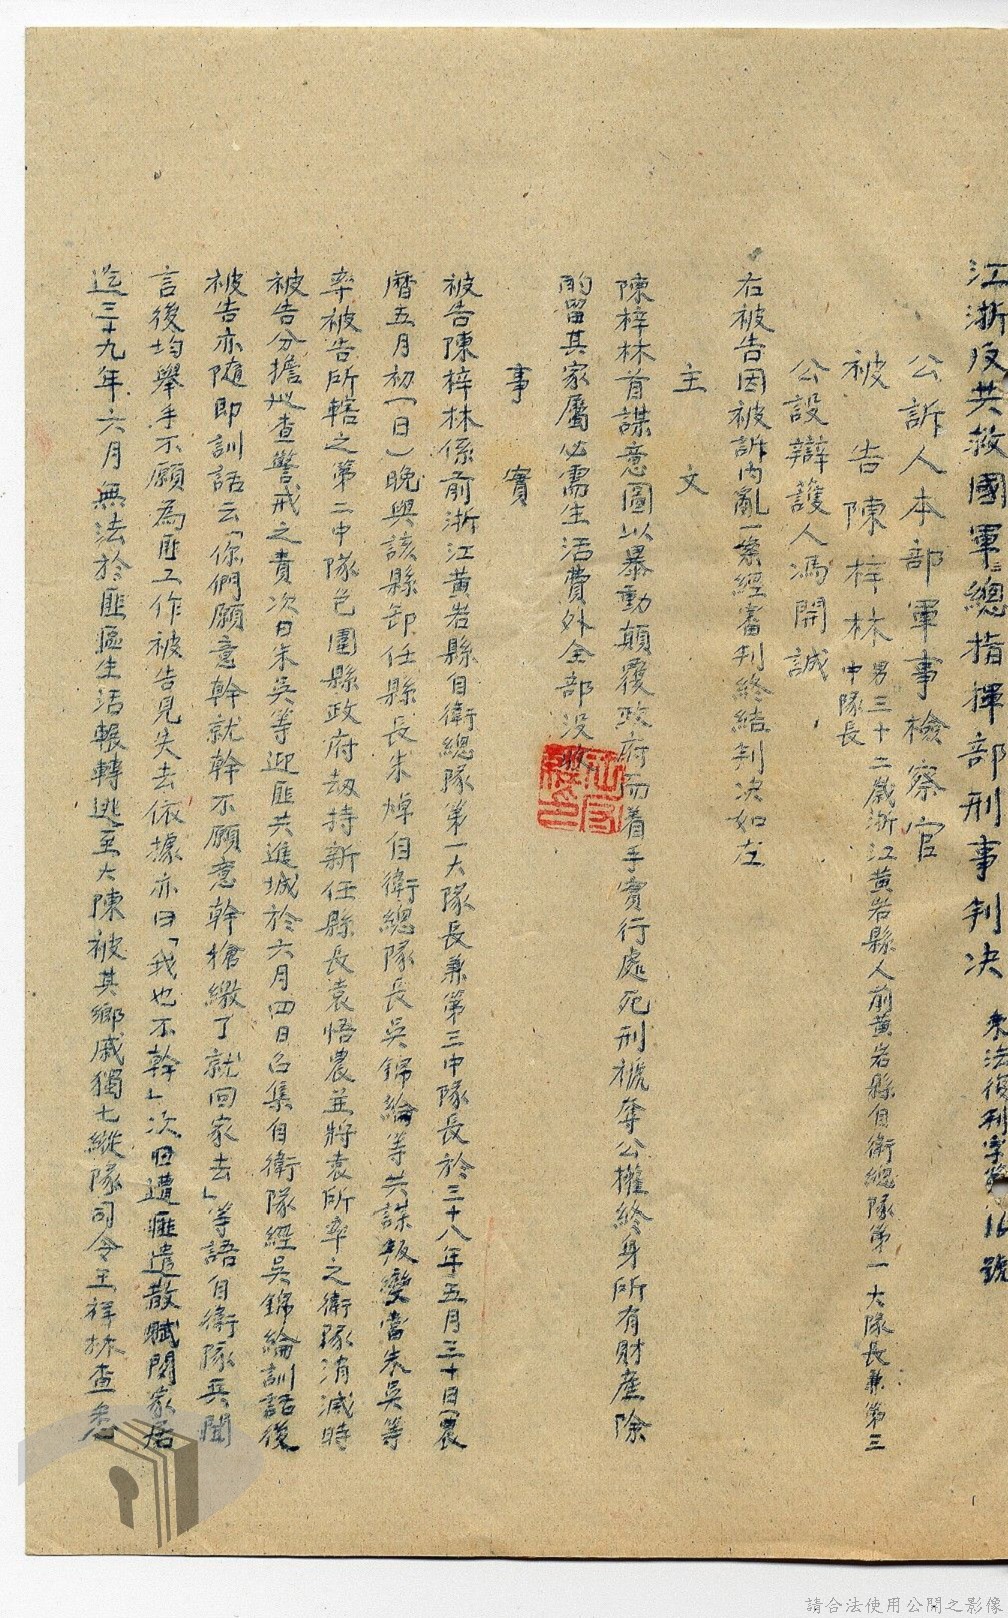 江浙反共救國軍總指揮部刑事判決
法復判字第16號
公訴人本部軍事檢察官
被告陳梓林男三十二歲浙江黃岩縣人前黃岩縣自衛總隊第一大隊長兼第三
中隊長
公設辯護人馮開誠
右被告因被訴內亂一案經審判終結判決如左
主文
陳梓林首謀意圖以暴動顛覆政府而着手實行處死刑褫奪公權終身所有財產除
酌留其家屬必需生活費外全部沒收
事實
被告陳梓林係前浙江黃岩縣自衛總隊第一大隊長兼第三中隊長於三十八年五月三十日(農
曆五月初一日)晚與該縣卸任縣長朱焯自衛總隊長吳錦綸等共謀叛變當朱吳等
率被告所轄之第二中隊包圍縣政府劫持新任縣長袁悟農並將袁所率之衛隊消滅時
被告分擔巡查警戒之責次日朱吳等迎匪共進城於六月四日召集自衛隊經吳錦綸訓話後
被告亦隨即訓話云「你們願意幹就幹不願意幹槍繳了就回家去」等語自衛隊兵聞
言後均舉手不願為匪工作被告見失去依據亦曰「我也不幹」次日遭匪遣散賦閑家居
迄三十九年六月無法於匪區生活輾轉逃至大陳被其鄉戚獨七縱隊司令王祥林查悉
請合法使用公開之影像